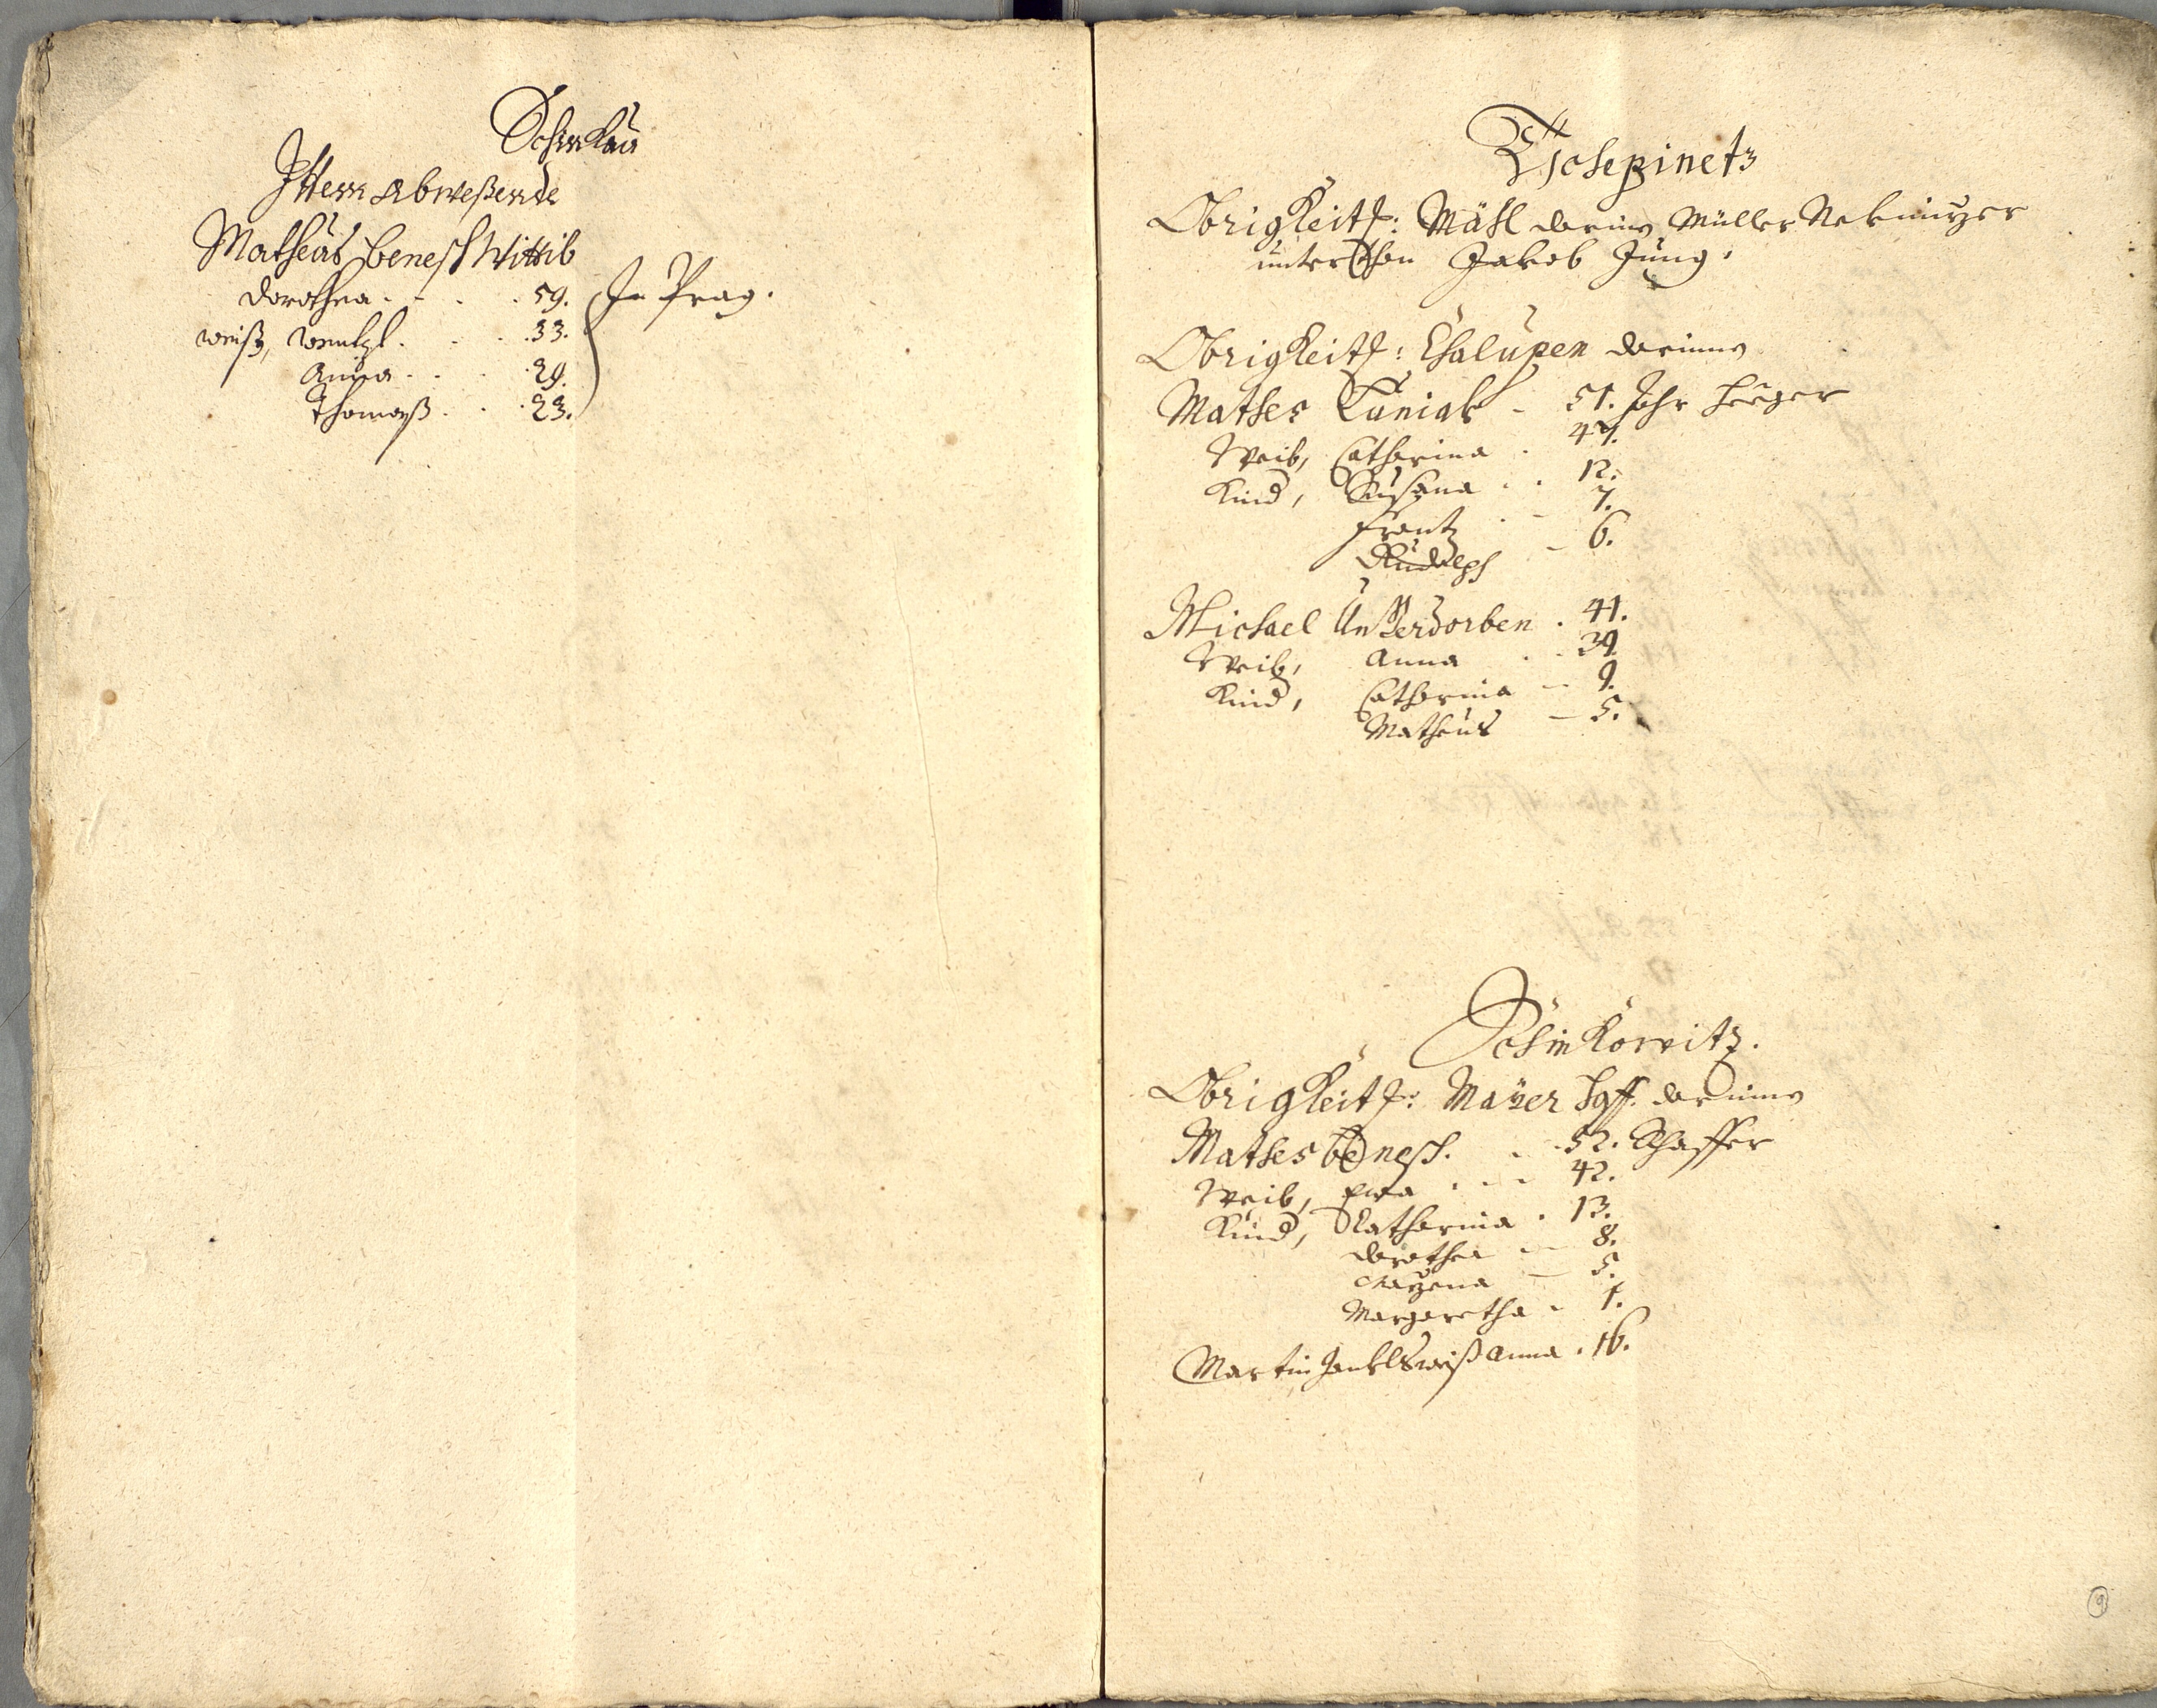 Schinkau
Ittem Abweßende
Matheus Benesch Wittib
Dorothea . . . 59. In Prag.
weiß, Wentzl . . . 33.
Anna . . . 29.
Thomaß . . . 23.
Tschepinetz
Obrigkeitl: Mühl darinn Müller Nekmirzer
unterthan Jakob Jung.
Obrigkeitl: Chalupen darinn
Mathes Taniak - 51. Jahr Heeger
Weib, Catharina . 47.
Kind, Susana . . 12.
Frantz . - 7.
Rudolph - 6.
Michael Unverdorben . 41.
Weib, Anna . . 39.
Kind, Catharina - 9.
Matheus - 5.
Schinkowitz.
Obrigkeitl: Mayer Hoff darinn
Mathes Benesch . . 52. Schaffer
Weib, Ewa . . . 42.
Kind, Katharina . 13.
Dorothea - 8.
Margaretha - 1.
Martin weiß Anna . 16.
9